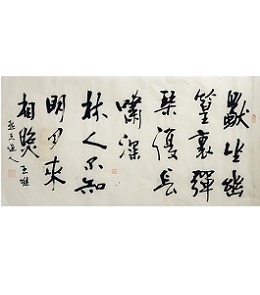 獨坐幽
篁裏彈
琴復長
嘯深
林人不知
明月來
相照 王維